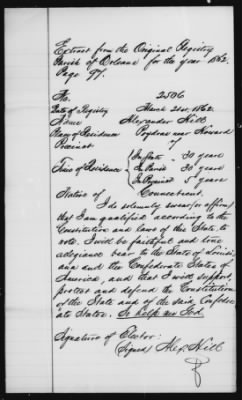 Extract from the Original Registry
Parish of Orleans for the year 1862.
Page 97.
No. 2506
Date of Registry March 21st, 1862.
Name Alexander Hill
Place of Residence Poydras near Howard
Precinct 5
Time of Residence In State - 30 years
In Parish 30 years
In Precinct 5 years
Native of Connecticut.
I do solemnly swear (or affirm)
that I am qualified according to the
Constitution and laws of this State, to
vote. I will be faithful and true
allegiance bear to the State of Louisi-
ana and the Confederate States of
America, and that I will support,
protect and defend the Constitution
of the State and of the said Confeder-
ate States. So help me God.
Signature of Elector:
Signed Alex. Hill